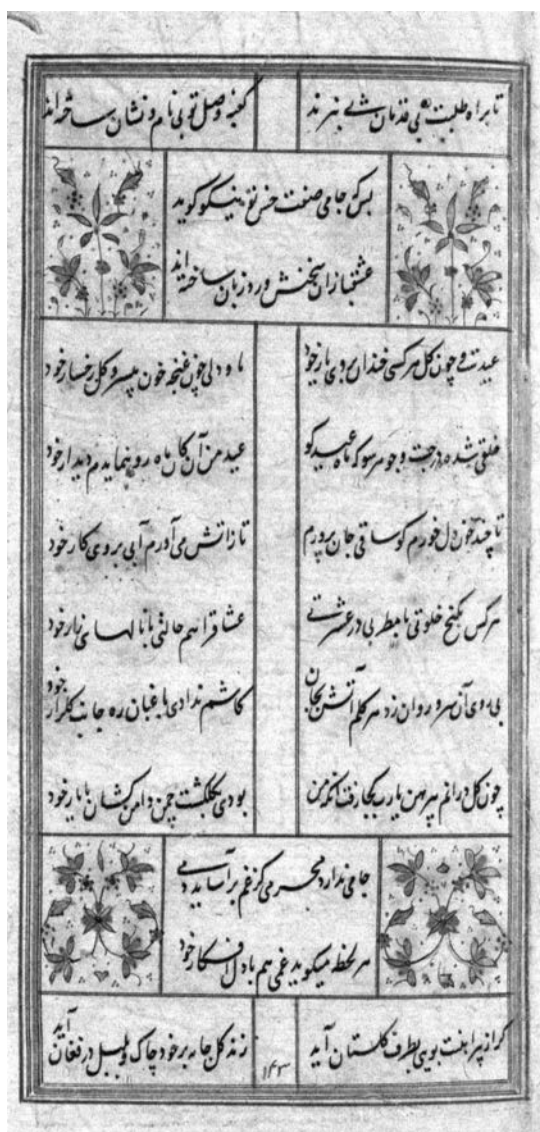 تا براه طلبت بی قدمان پی نبرند کعبه وصل تو بی نام و نشان ساخته اند
بس که جامی صفت حسن تو نیکو کوید
عشقبازان سخنش ورد زبان ساخته اند
عیدست و چون کل هر کسی خندان بروی یار خود ما و دلی چون غنچه خون بی سرو کل رخسار خود
خلقی شده در جست و جو هر سو که ماه عید کو عید من آن کان ماه رو بنمایدم دیدار خود
تا چند خون دل خورم کو ساقی جان پرورم تا ز آتش می آورم آبی بروی کار خود
هر کس بکنج خلوتی با مطربی در عشرتی عشاق را هم حالتی با نالهای زار خود
بی روی آن سرو روان زد هر کلم آتش بجان کاشم ندادی باغبان ره جانب کلزار خود
چون کل درانم پیرهن یا رب کجا رفت آنکه من بودی بکلکشت چمن دامن کشان با یار خود
جامی ندارد محرمی کز غم برآساید دمی
هر لحظه میکوید غمی هم با دل افکار خود
کر از پیراهنت بویی بطرف کلستان آید زند کل جامه بر خود چاک و بلبل در فغان آید
۱۴۳